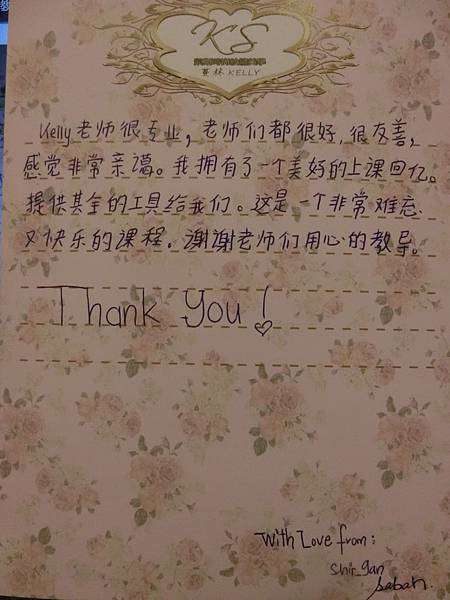 KS
蔓林 KELLY
Kelly老师很专业，老师们都很好，很友善，
感觉非常亲谒。我拥有了一个美好的上课回忆。
提供其全的工具给我们。这是一个非常难忘、
又快乐的课程。谢谢老师们用心的教导。
Thank You!
With Love from:
Shir_gan
Sabah.